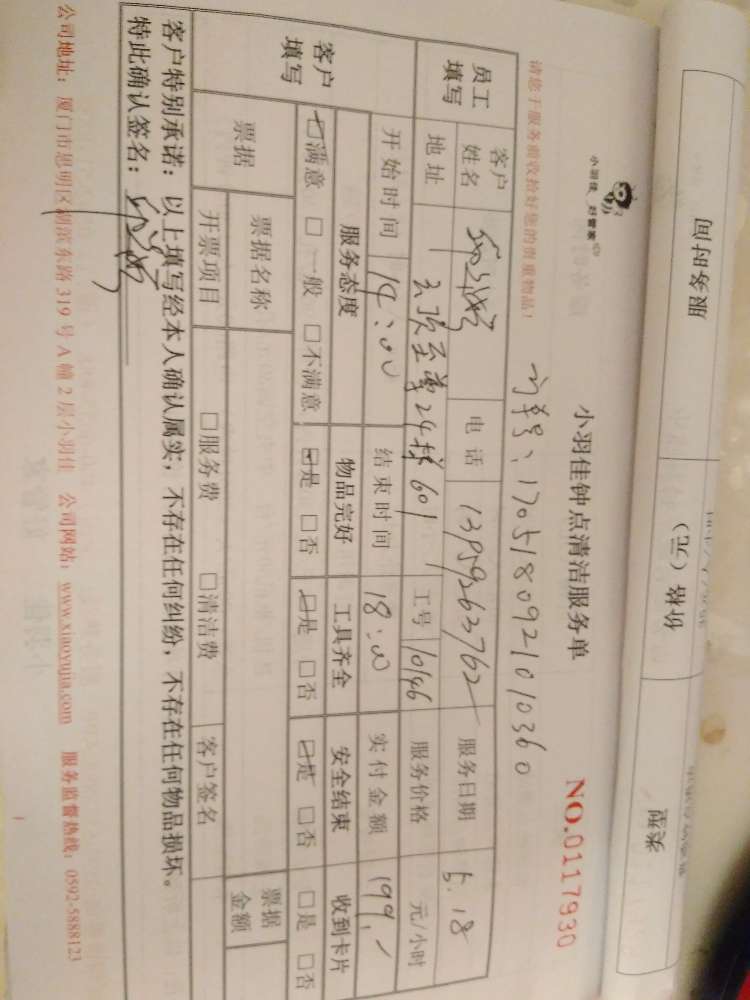 服务时间
价格（元）
类型
小羽佳 好管家
小羽佳钟点清洁服务单
NO.0117930
请您于服务前收拾好您的贵重物品！
订单号：1705180921010360
员工填写
客户姓名 电话 13959263762 服务日期 5.18
地址 云顶至尊24梯601 工号 10146 服务价格 元/小时
开始时间 14:00 结束时间 18:00 实付金额 199.
客户填写
服务态度 物品完好 工具齐全 安全结束 收到卡片
☑满意 □一般 □不满意 ☑是 □否 ☑是 □否 ☑是 □否 □是 □否
票据 票据名称 票据金额
开票项目 □服务费 □清洁费 客户签名
客户特别承诺：以上填写经本人确认属实，不存在任何纠纷，不存在任何物品损坏。
特此确认签名：
公司地址：厦门市思明区湖滨东路319号A幢2层小羽佳 公司网站：www.xiaoyujia.com 服务监督热线：0592-5888123